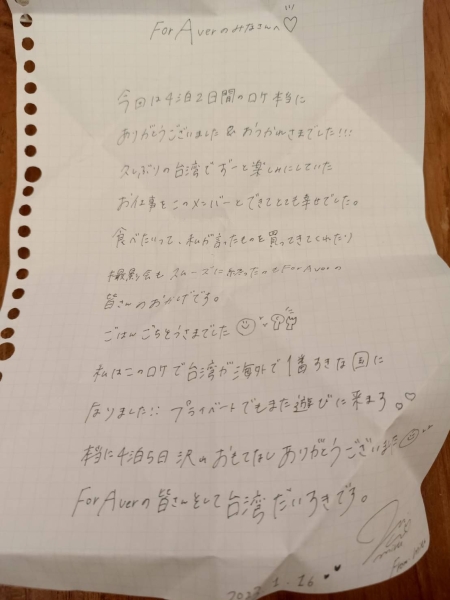 For Aver のみなさんへ♡
今回は4泊2日間のロケ本当に
ありがとうございました & おつかれさまでした!!!
久しぶりの台湾でずーと楽しみにしていた
お仕事をこのメンバーとできてとても幸せでした。
食べたいって、私が言ったものを買ってきてくれたり
撮影会もスムーズに出きったのもFor Averの
皆さんのおかげです。
ごはんごちそうさまでした
私はこのロケで台湾が海外で1番好きな国に
なりました!! プライベートでもまた遊びに来まる。♡
本当に4泊5日沢山おもてなしありがとうございました
For Averの皆さんそして台湾だいすきです。
From
2023.1.16